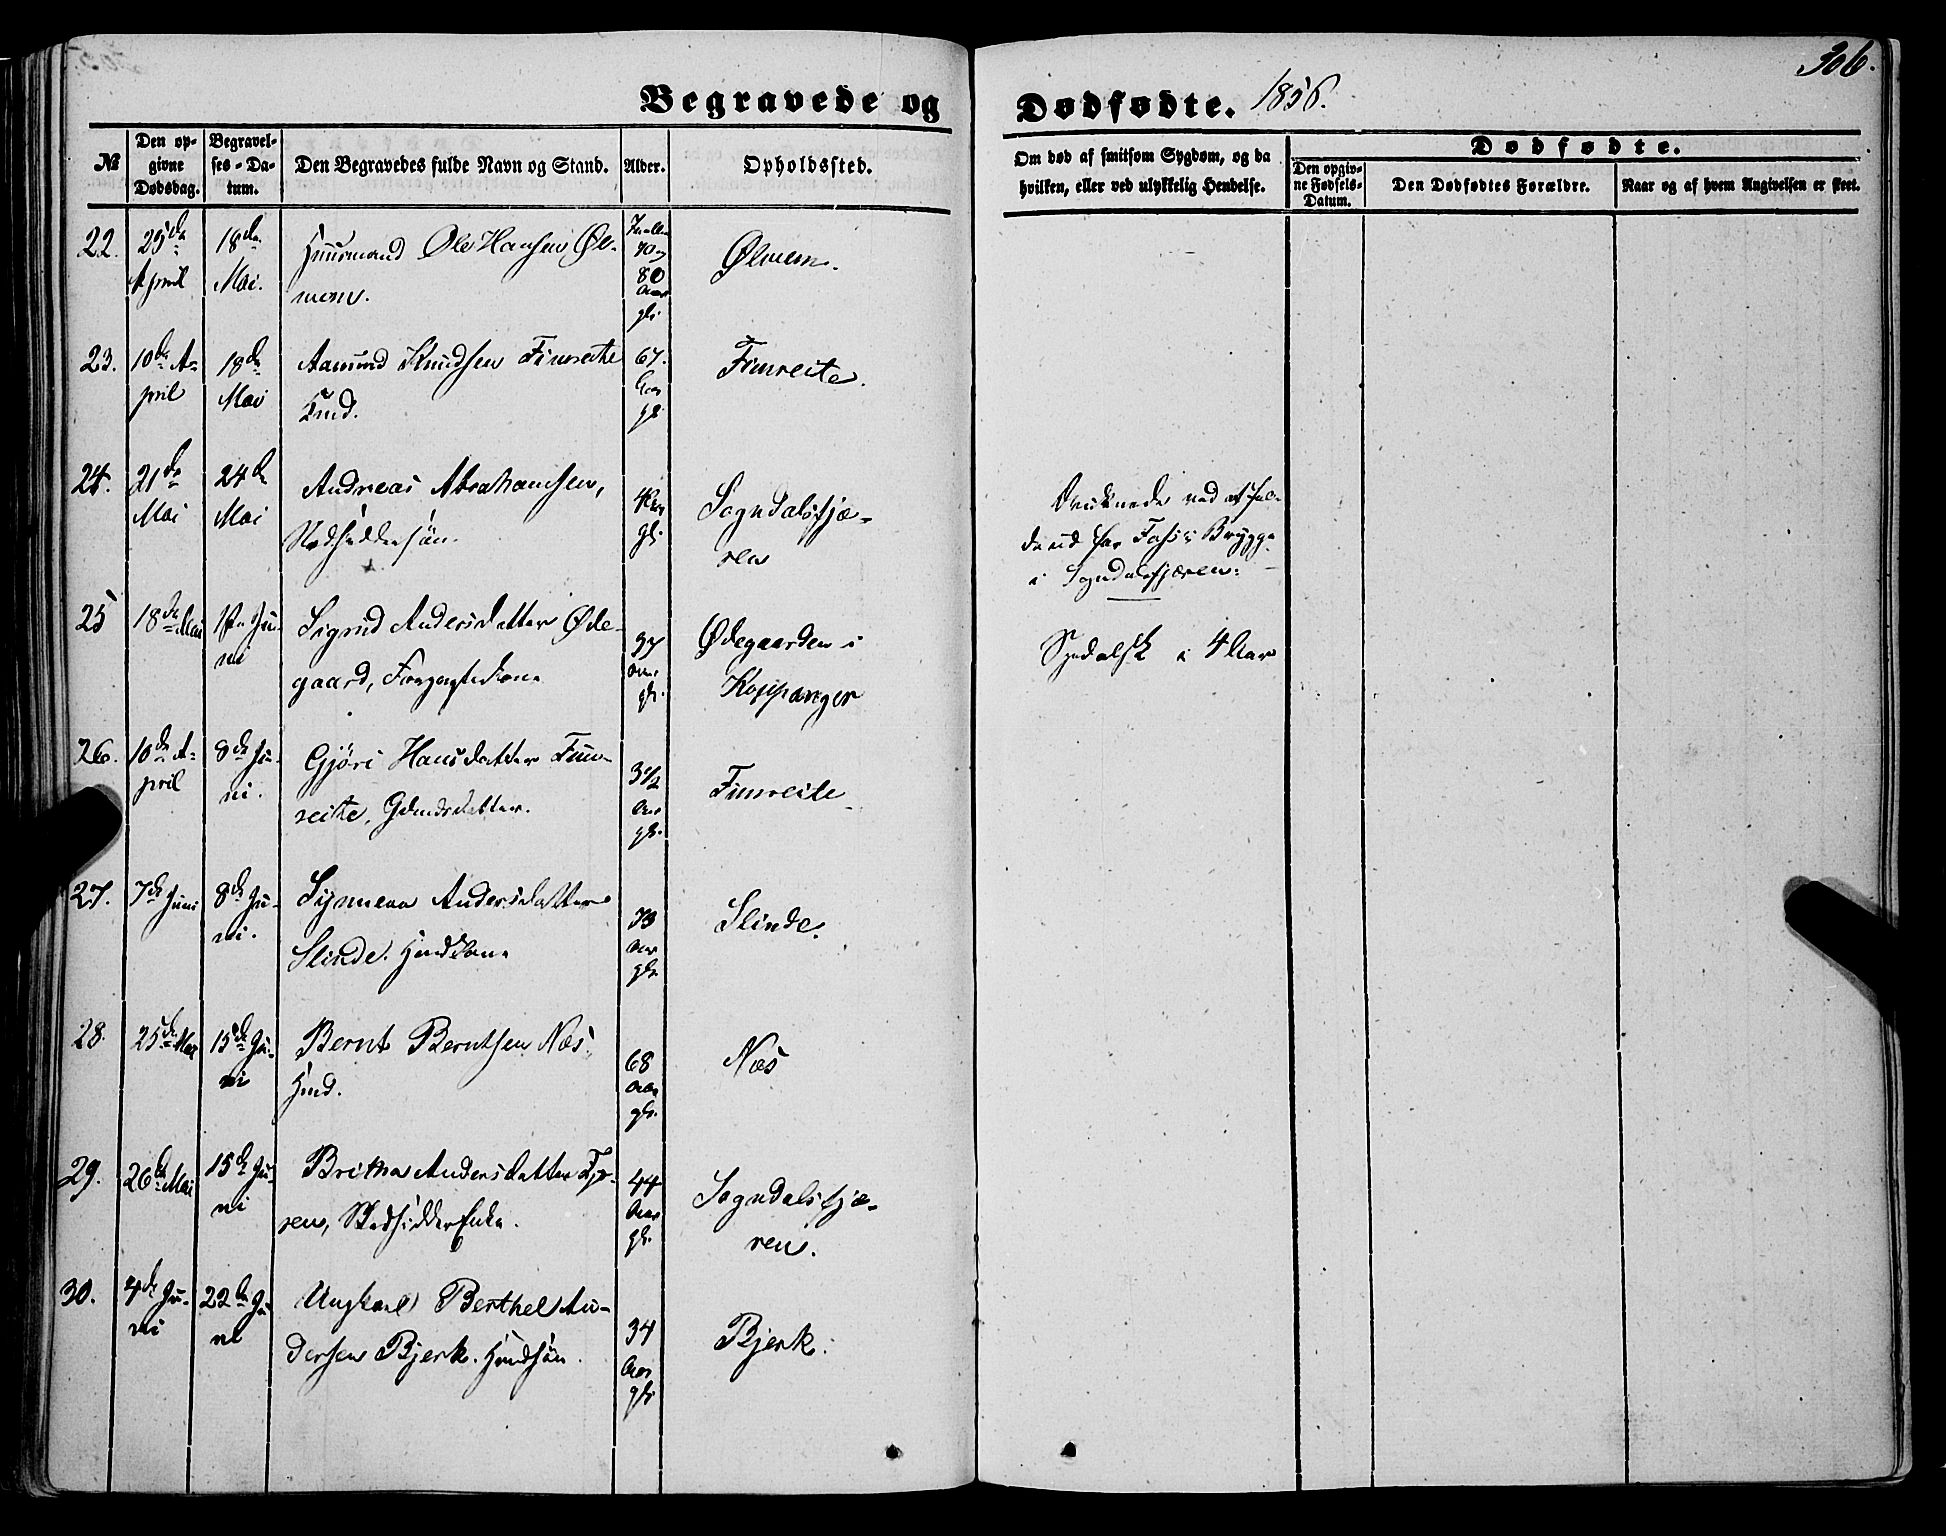 306.
Begravede og Dødfødte. 1856.
№
Den op-
givne
Dødsdag.
Begravel-
ses-Da-
tum.
Den Begravedes fulde Navn og Stand.
Alder.
Opholdssted.
Om død af smitsom Sygdom, og da
hvilken, eller ved ulykkelig Hendelse.
Dødfødte.
Den opgiv-
ne Fødsels-
Datum.
Den Dødfødtes Forældre.
Naar og af hvem Angivelsen er skeet.
22. 25de April 18de Mai. Huusmand Ole Hansen Øl-
mem. 70 og 80 Aar gl. Ølmem.
23. 10de A-
pril 18de Mai Aamund Knudsen Fimreite
67 Aar gl. Fimreite.
24. 21de Mai 24de Mai Andreas Abrahamsen,
4 Aar gl. Sogndalsfjæ-
ren
Druknede ved at fal-
de ud for Brygge
i Sogndalsfjæren.
25 18de Mai 1ste Ju-
ni Sigrid Andersdatter Øde-
gaard, 37 Aar gl. Ødegaarden i
Kaupanger
Spedalsk i 4 Aar
26. 10de A-
pril 8de Ju-
ni. Gjøri Hansdatter Fim-
reite, 3 1/2 Aar gl. Fimreite
27. 7de Juni 8de Ju-
ni. Synneva Andersdatter
Slinde. 73 Aar gl. Slinde.
28. 25de Mai 15de Ju-
ni Bernt Berntsen Næs,
68 Aar gl. Næs
29. 26de Mai 15de Ju-
ni Britha Andersdatter Fjæ-
ren, StrandsidderEnke. 44 Aar gl. Sogndalsfjæ-
ren.
30. 4de Ju-
ni 22de Ju-
ni Ungkarl Berthel An-
dersen Bjerk. 34 Aar gl. Bjerk.